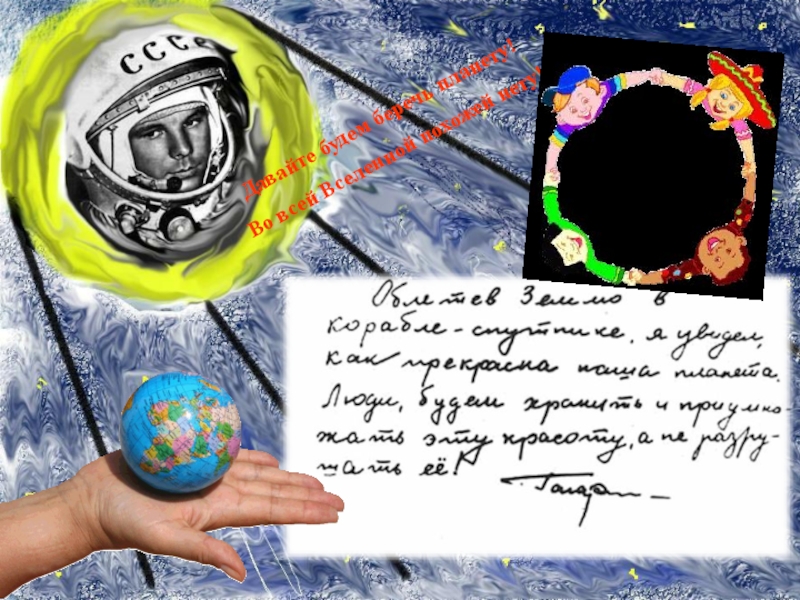 СССР
Давайте будем беречь планету!
Во всей Вселенной похожей нету!
Облетев Землю в
корабле-спутнике, я увидел,
как прекрасна наша планета.
Люди, будем хранить и приумно-
жать эту красоту, а не разру-
шать её!
Гагарин